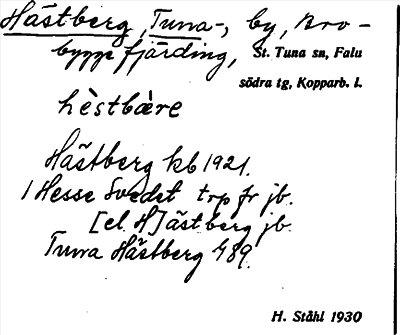 Hästberg, Tuna-, by, Bro-
bygge fjärding, St. Tuna sn, Falu
södra tg, Kopparb. l.
hèstbære
Hästberg kb 1921.
1 Hesse Svedet trp fr jb.
[el. H]ästberg jb.
Tuna Hästberg
H. Ståhl 1930